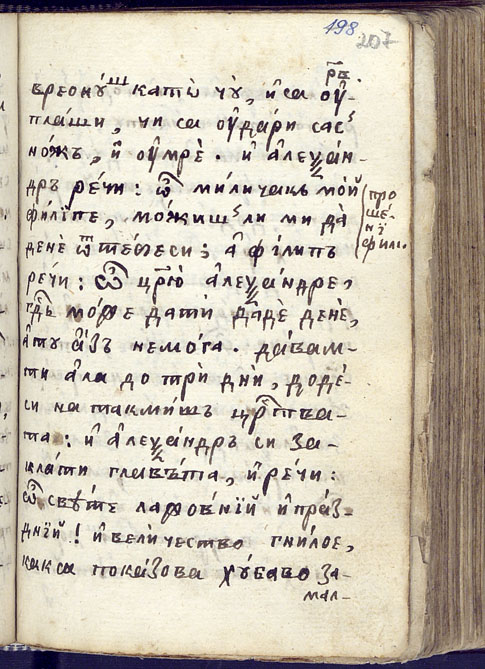 198
207
рв.
вреонꙋ́ш катѡ̀ чꙋ̀, и҆ са оу҆-
пла́ши, чи са оу҆да́ри сас
но́жъ, и҆ оу҆мрѐ. и҆ а҆леѯа́н-
дръ ре́чи: ѽ ми́личакъ мо́й
фили́пе, мо́жиш ли ми да̀
денѐ ѿ тебеси; а҆ фі́липъ
ре́чи: ѽ цр҃ю̀ а҆леѯа́ндре,
гдⷭ҇ь мо́же датѝ да́де денѐ,
а҆ту а҆́зъ немо́га. да́вам-
ти а҆ла до трѝ дни̂, доде́-
си на такми́шъ црⷭ҇тва-
та: и҆ а҆леѯа́ндръ си за-
кла́ти глава́та, и҆ ре́чи:
ѽ свѣ́те лажо́внїй и҆ пра́з-
днїй! и҆ вели́чество гнило́е,
как са пока́зова хꙋ́баво за-
мал-
про
ше́-
нї
філі.